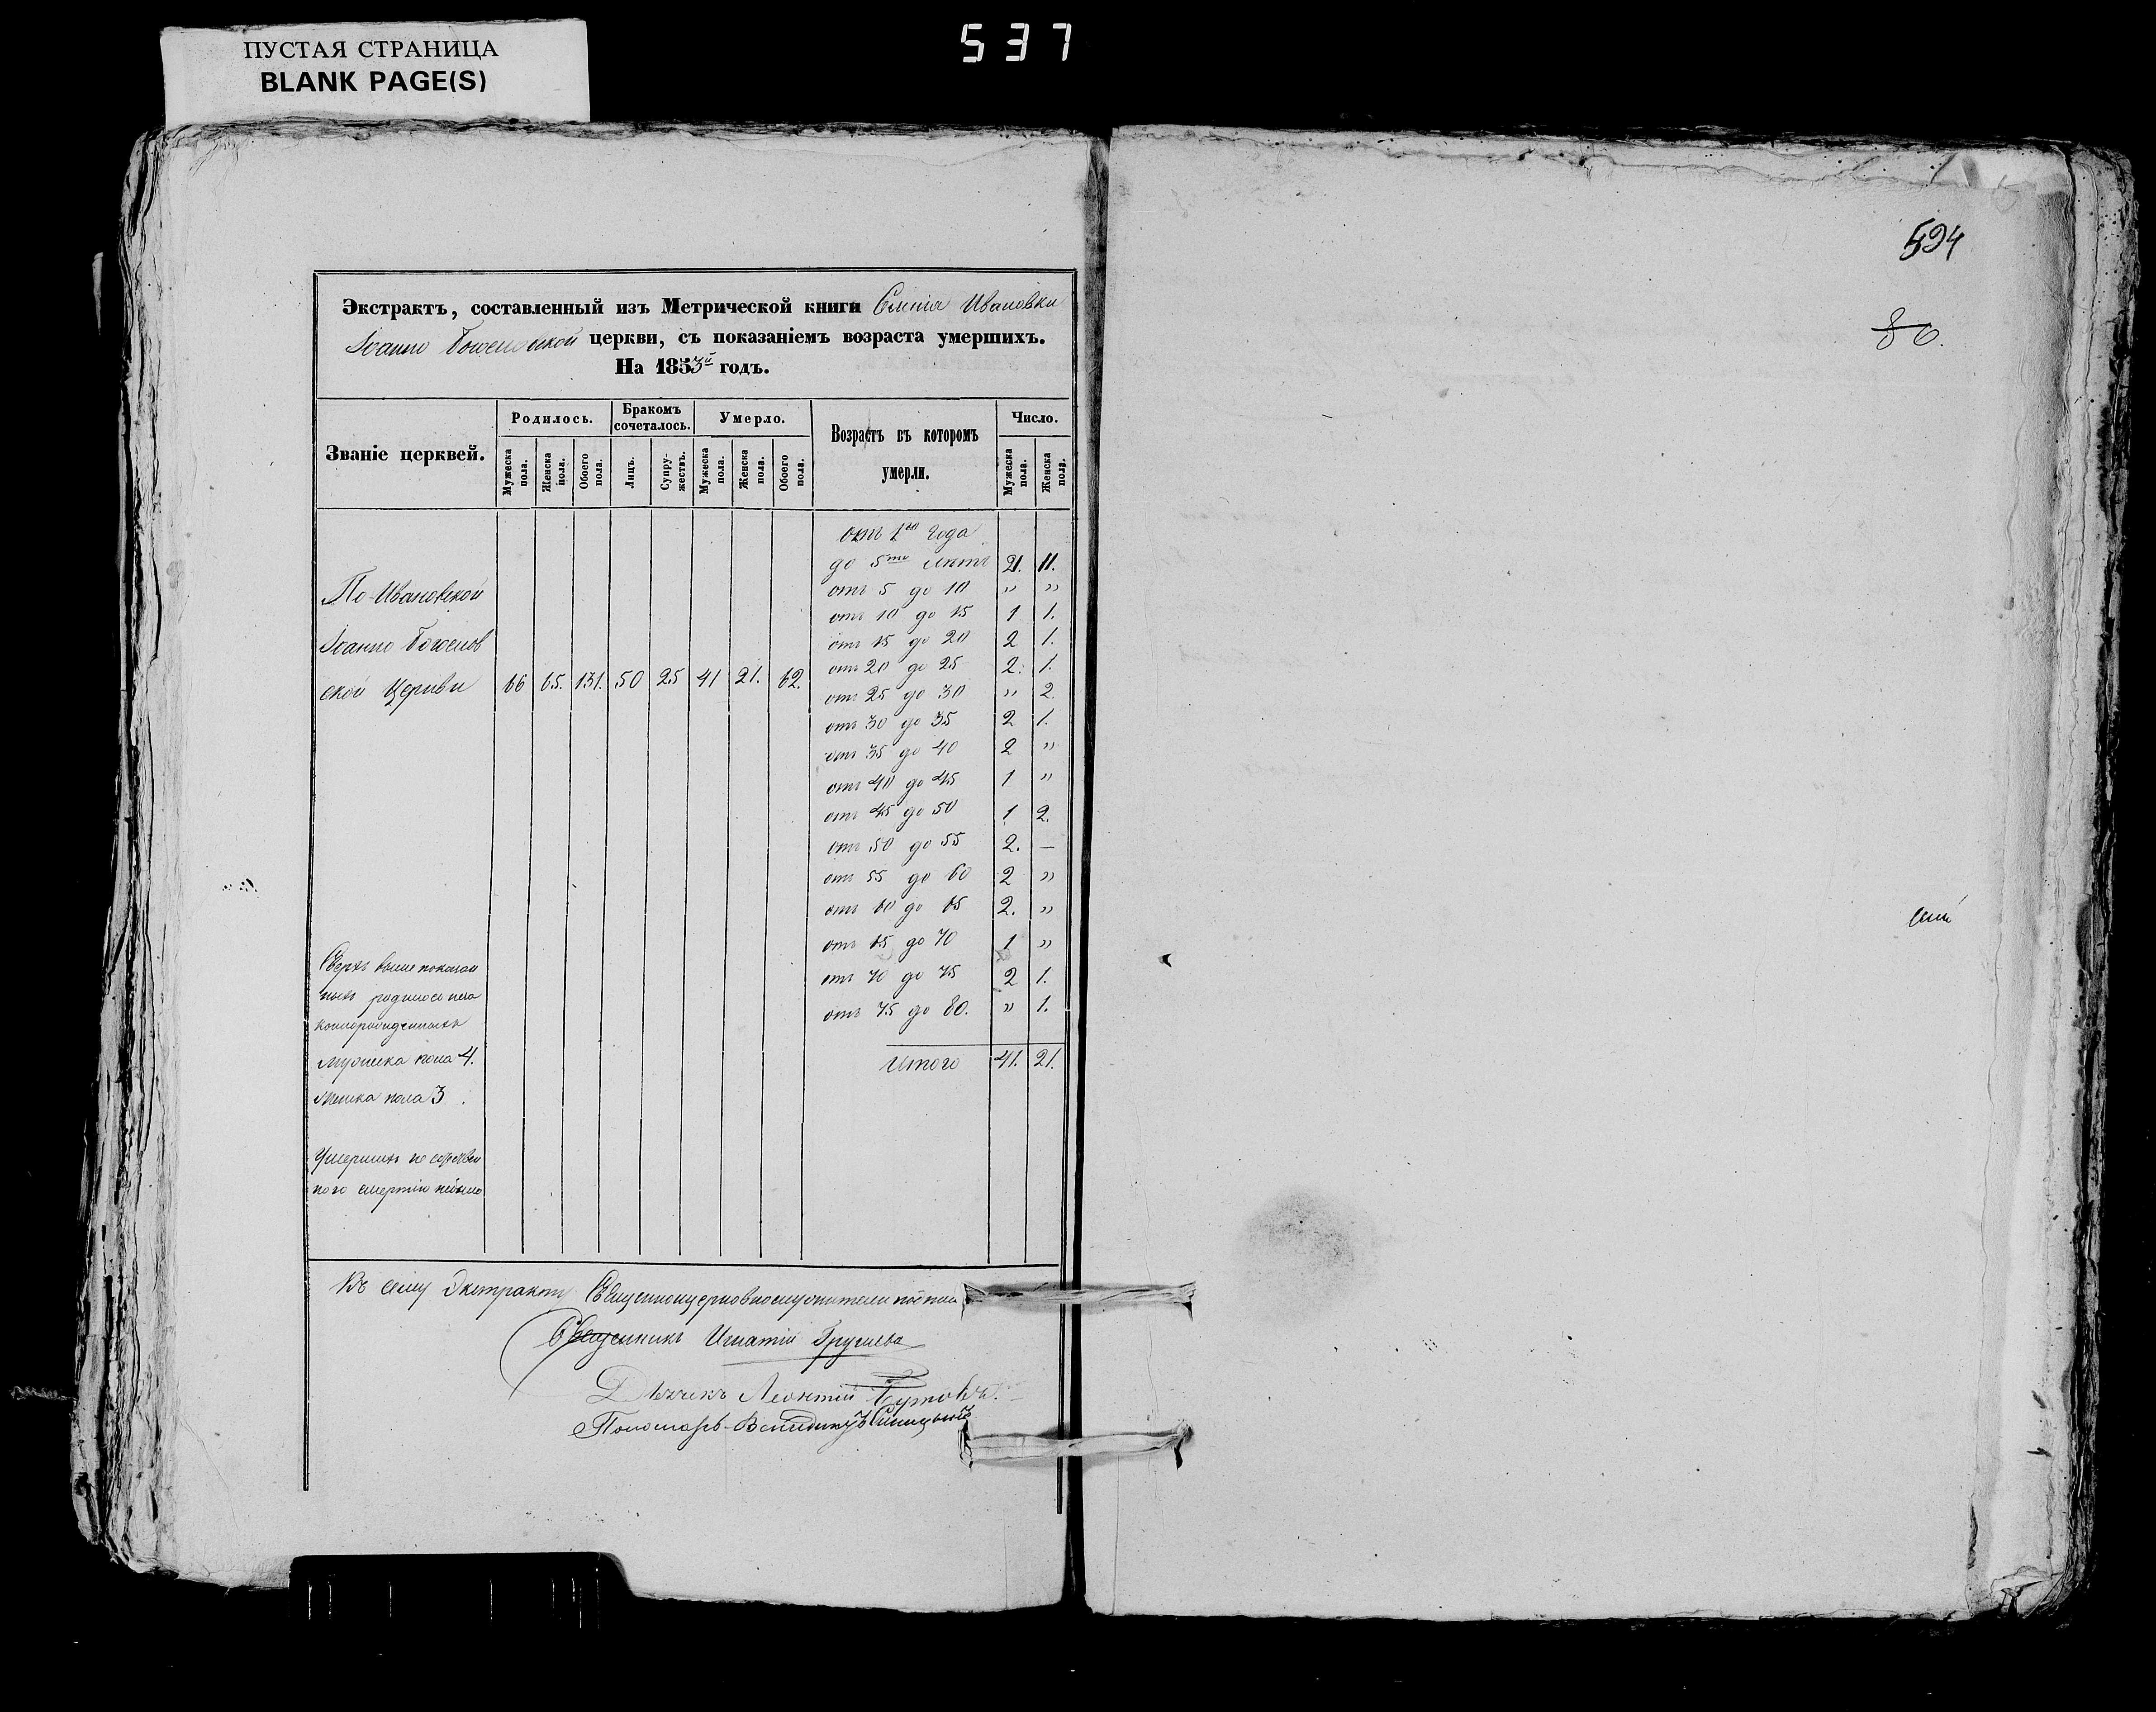 ПУСТАЯ СТРАНИЦА
BLANK PAGE(S)
537
594
80.
Экстрактъ, составленный изъ Метрической книги Ивановки
Іоанно Богословской церкви, съ показаніемъ возраста умершихъ.
На 1853й годъ.
Званіе церквей. Родилось. Бракомъ сочеталось. Умерло. Возрастъ въ котором умерли. Число.
Мужеска пола. Женска пола. Обоего пола. Лицъ. Супружествъ. Мужеска пола. Женска пола. Обоего пола. Мужеска пола. Женска пола.
По Ивановской
Іоанно Богослов
ской Церкви 66 65. 131. 50 25 41 21. 62.
отъ 1го года
до 5ти летъ 21. 11.
отъ 5 до 10 „ „
отъ 10 до 15 1 1.
отъ 15 до 20 2 1.
отъ 20 до 25 2. 1.
отъ 25 до 30 „ 2.
отъ 30 до 35 2 1.
отъ 35 до 40 2 „
отъ 40 до 45 1 „
отъ 45 до 50 1 2.
отъ 50 до 55 2. —
отъ 55 до 60 2 „
отъ 60 до 65 2. „
отъ 65 до 70 1 „
отъ 70 до 75 2 1.
отъ 75 до 80. „ 1.
Итого 41. 21.
Сверхъ выше показан
ныхъ родилось неза
коннорожденныхъ
мужска пола 4.
женска пола 3.
Умершихъ не
смертію небыло
Къ сему Экстракту Священноцерковнослужители
Священникъ Игнатій
Дьячекъ Леонтій
Пономарь